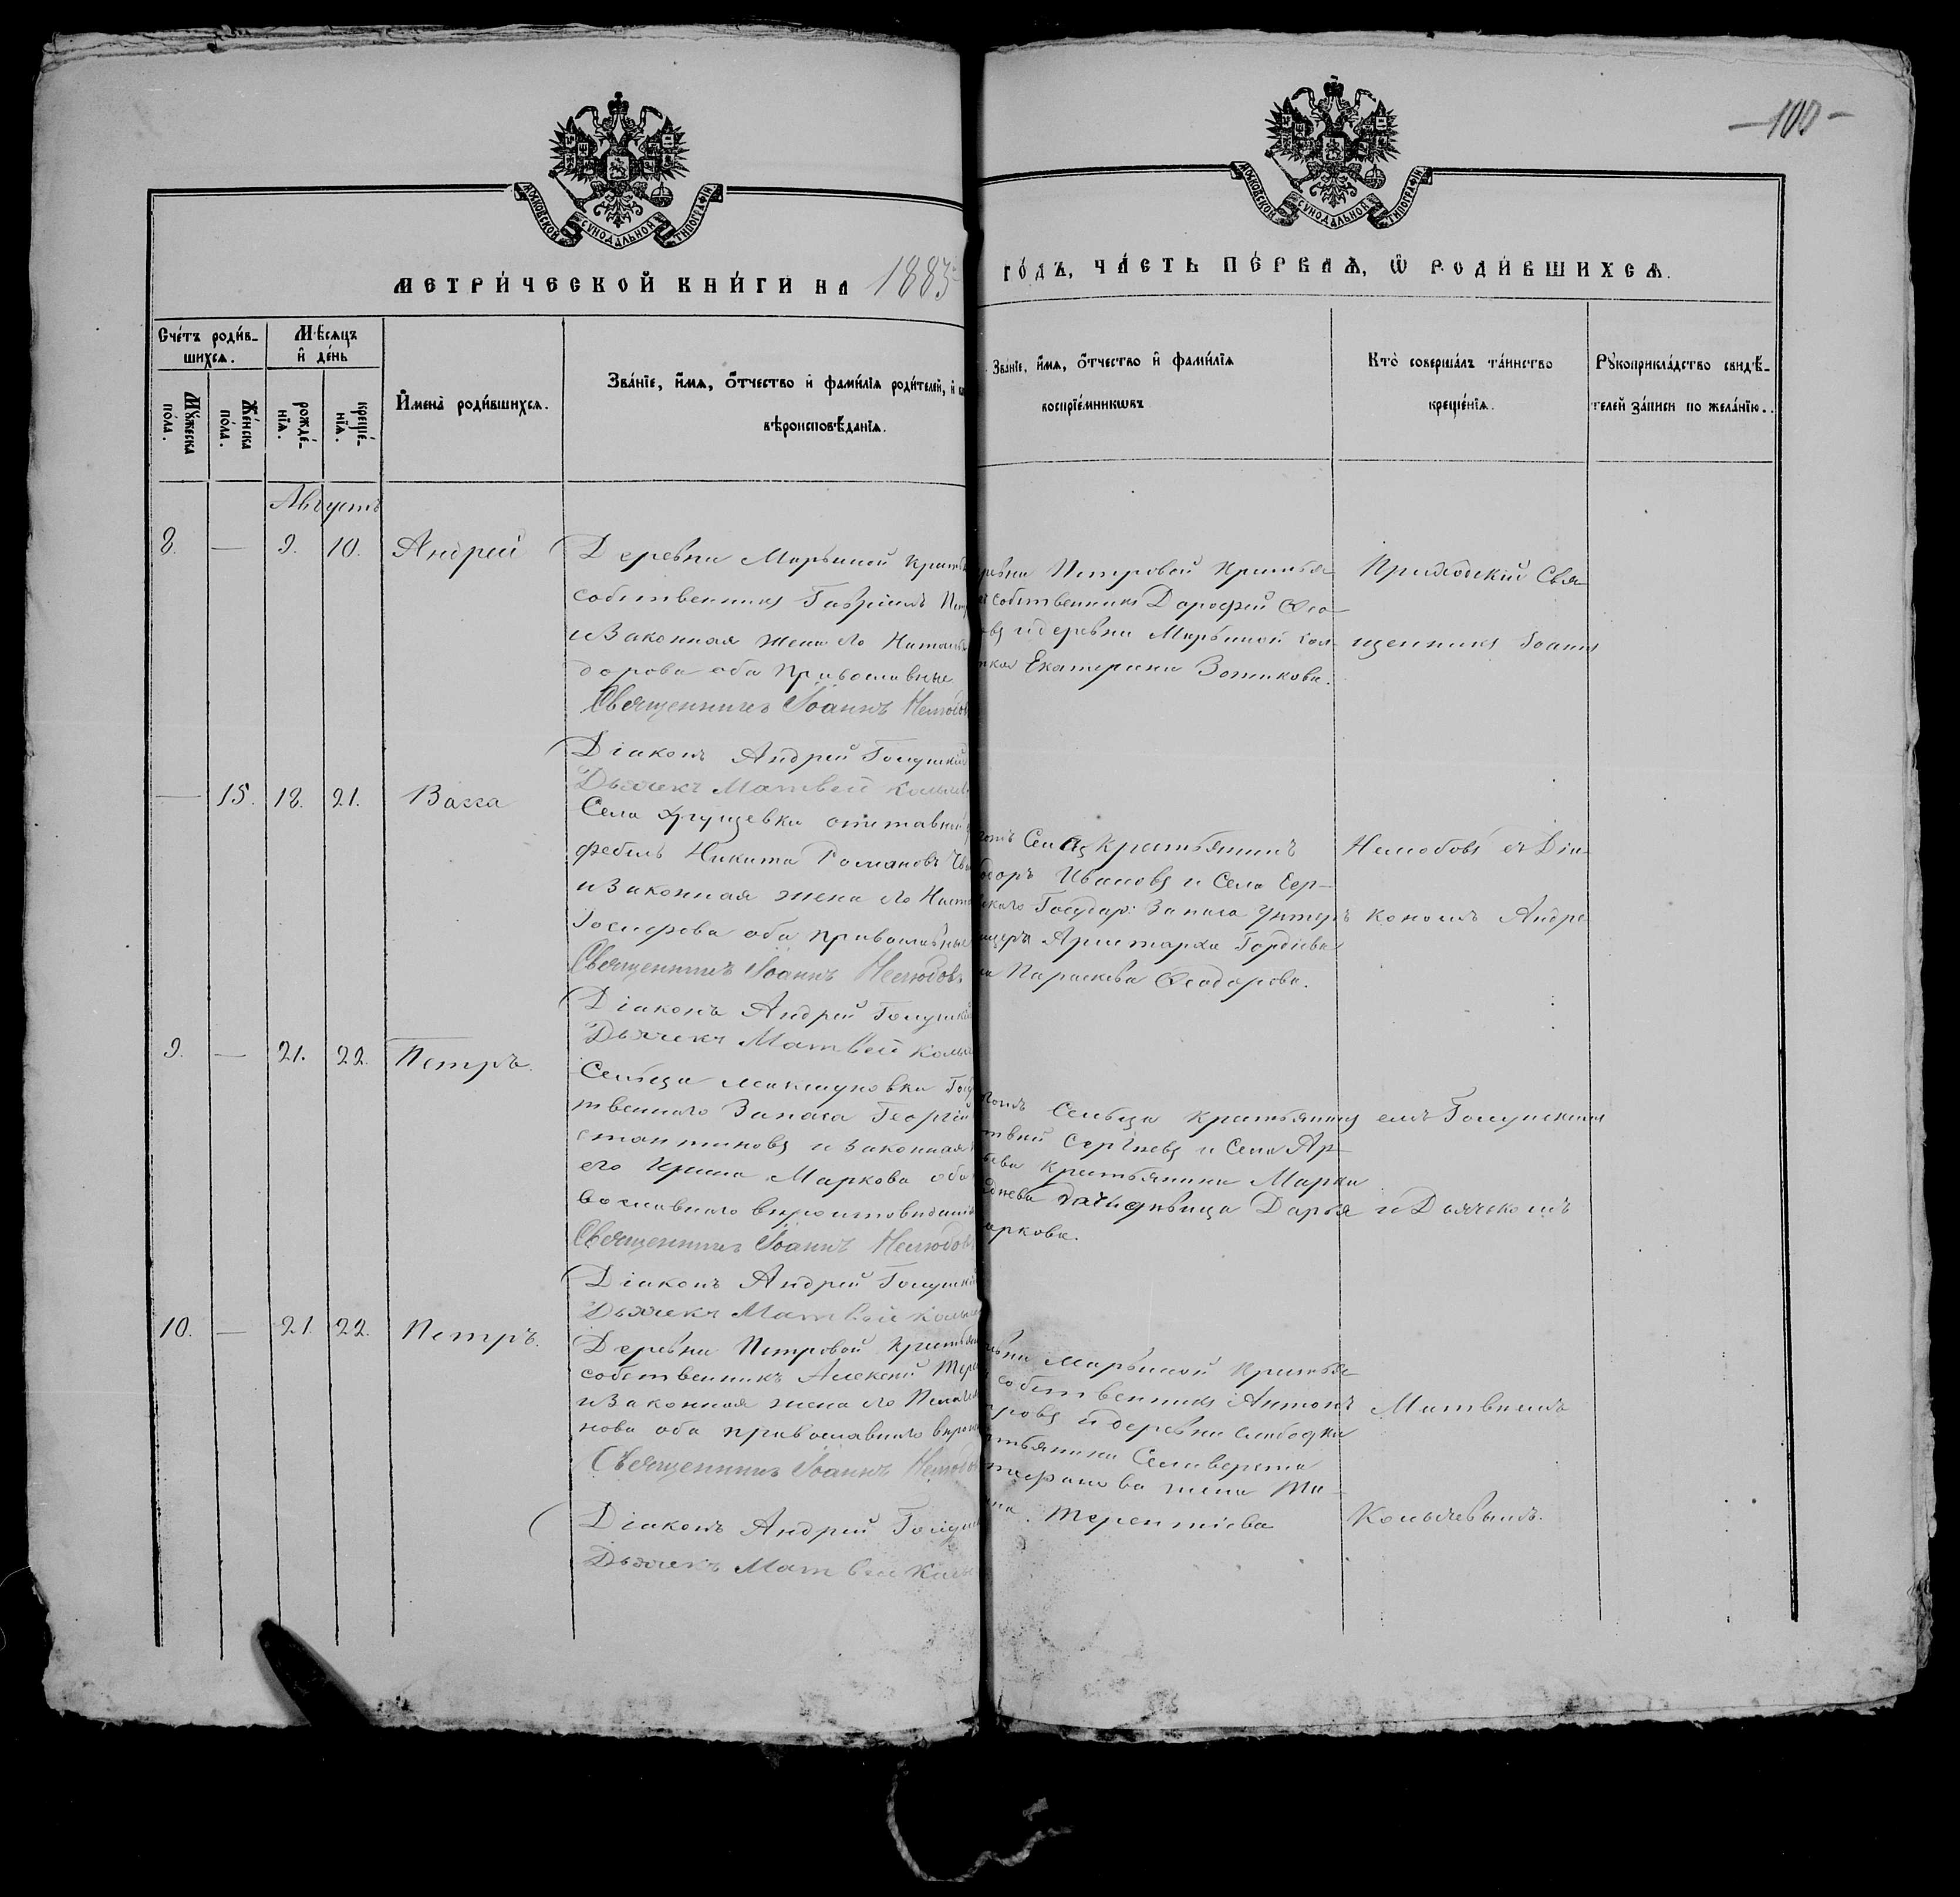 100
МОСКОВСКОЙ СѴНОДАЛЬНОЙ ТИПОГРАФІИ
МОСКОВСКОЙ СѴНОДАЛЬНОЙ ТИПОГРАФІИ
МЕТРИ́ЧЕСКОЙ КНИ́ГИ НА 1883
ГО́ДЪ, ЧА́СТЬ ПЕ́РВАѦ, Ѽ РОДИ́ВШИХСѦ.
Сче́тъ роди́в-
шихсѧ.
Мꙋ́жеска по́ла.
Же́нска по́ла.
Мѣ́сѧцъ
и҆ де́нь
рожде́-
нїѧ.
креще́-
нїѧ.
И҆мена̀ роди́вшихсѧ.
Зва́нїе, и҆́мѧ, ѻ҆́тчество и҆ фами́лїѧ роди́телей, и҆
вѣроисповѣ́данїѧ.
Зва́нїе, и҆́мѧ, ѻ҆́тчество и҆ фами́лїѧ
воспрїе́мникѡвъ
Кто̀ соверша́лъ та́инство
креще́нїѧ.
Рꙋкоприкла́дство свидѣ́-
телей за́писи по жела́нїю.
Августъ
8. — 9. 10. Андрей
Деревни Марьиной Крестья
собственникъ Гавріилъ Пет
и законная жена его Наталья
дорова оба православные
Священникъ Іоаннъ Нелюбов
Діаконъ Андрей Голунскій
Дьячекъ Матвей Колыче
ревни Петровой Крестья
собственникъ Дорофей Ѳео
овъ и деревни Марьиной сол
тка Екатерина Зотикова.
Приходскій Свя
щенникъ Іоаннъ
— 15. 18. 21. Васса
Села Хрущевки отставной
фебель Никита Романовъ
и законная жена его Наста
Госифова оба православные
Священникъ Іоаннъ Нелюбовъ
Діаконъ Андрей Голунскій
Дьячекъ Матвей Колы
гожъ Села Крестьянинъ
доръ Ивановъ и Села Сер-
скаго Государ: Запаса Унтеръ
ицера Аристарха Гордіева
на Параскева Ѳеодорова.
Нелюбовъ съ Діа-
кономъ Андре
9. — 21. 22. Петръ.
Сельца Максуновки Госу
твеннаго Запаса Георгій
стантиновъ и законная
его Ирина Маркова оба
вославнаго вероисповеданія
Священникъ Іоаннъ Нелюбов
Діаконъ Андрей Голунскій
Дьячекъ Матвей Колы
гожъ Сельца Крестьянинъ
твей Сергѣевъ и Села Ар-
Крестьянина Марка
Дарья
аркова.
емъ Голунскимъ
и Дьячкомъ
10. — 21. 22. Петръ.
Деревни Петровой Крестьян
собственникъ Алексей Тере
и законная жена его Пелаг
нова оба православнаго веро
Священникъ Іоаннъ Нелюбо
Діаконъ Андрей Голун
Дьячекъ Матвей Колы
евни Марьиной Крестья
собственникъ Антонъ
тровъ и деревни Слободки
стьянина Селиверста
жена Та-
на Терентіева
Матвеемъ
Колычевымъ.